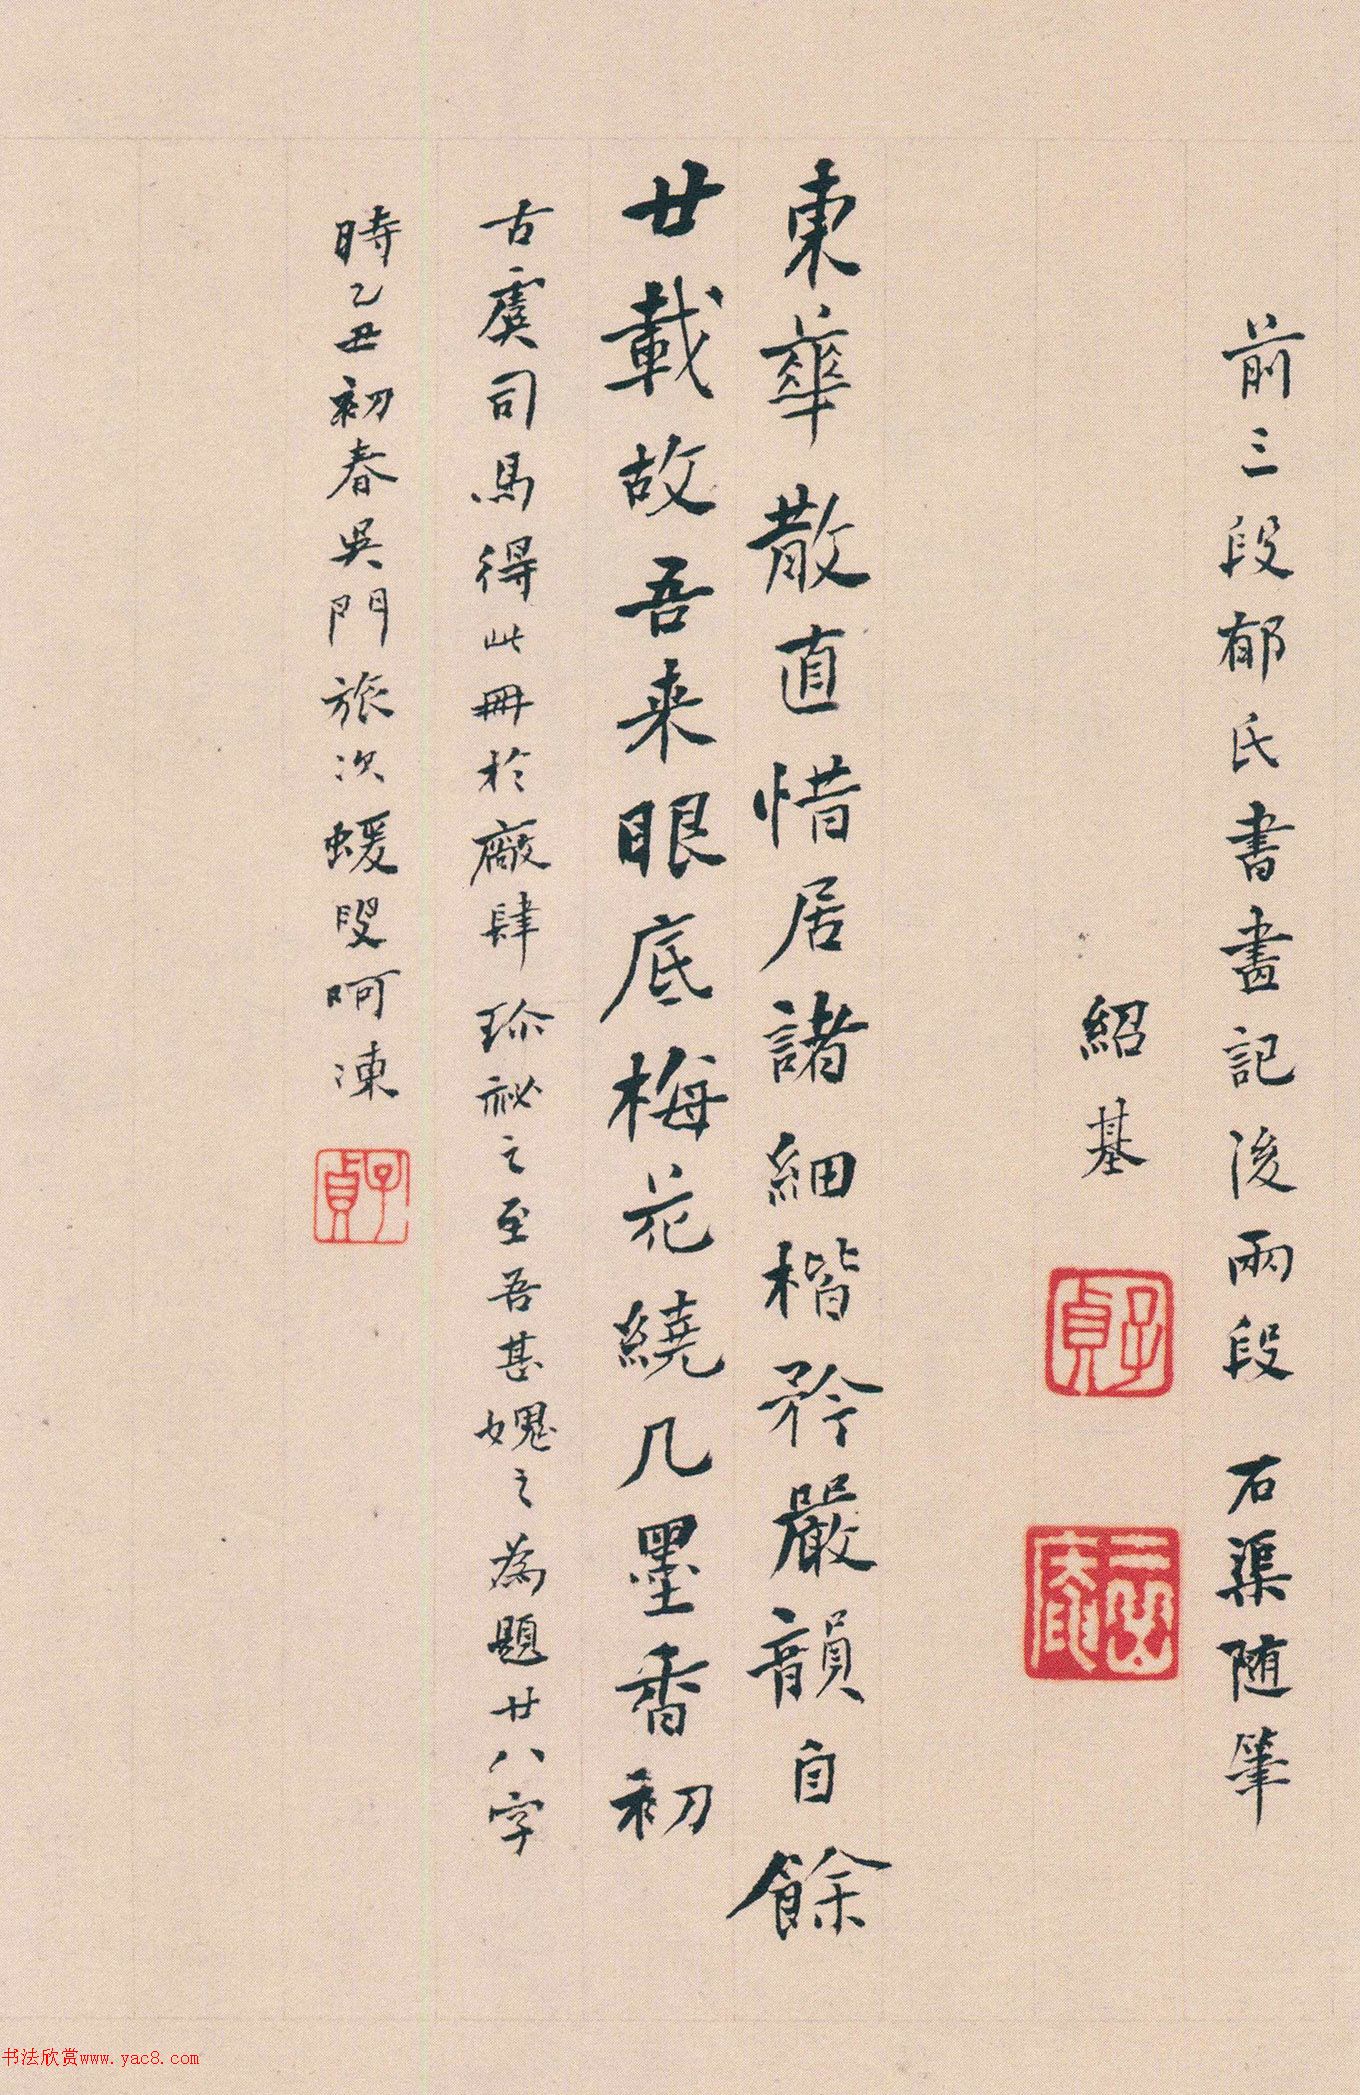 前三段郁氏書畫記後兩段石渠随筆
紹基
子貞
東華散直惜居諸細楷矜嚴韻自餘
廿載故吾来眼底梅花繞几墨香初
古虞司馬得此冊於廠肆珎祕之至吾甚媿之為題廿八字
時乙丑初春吳門旅次蝯叟呵凍
子貞
书法欣赏www.yac8.com